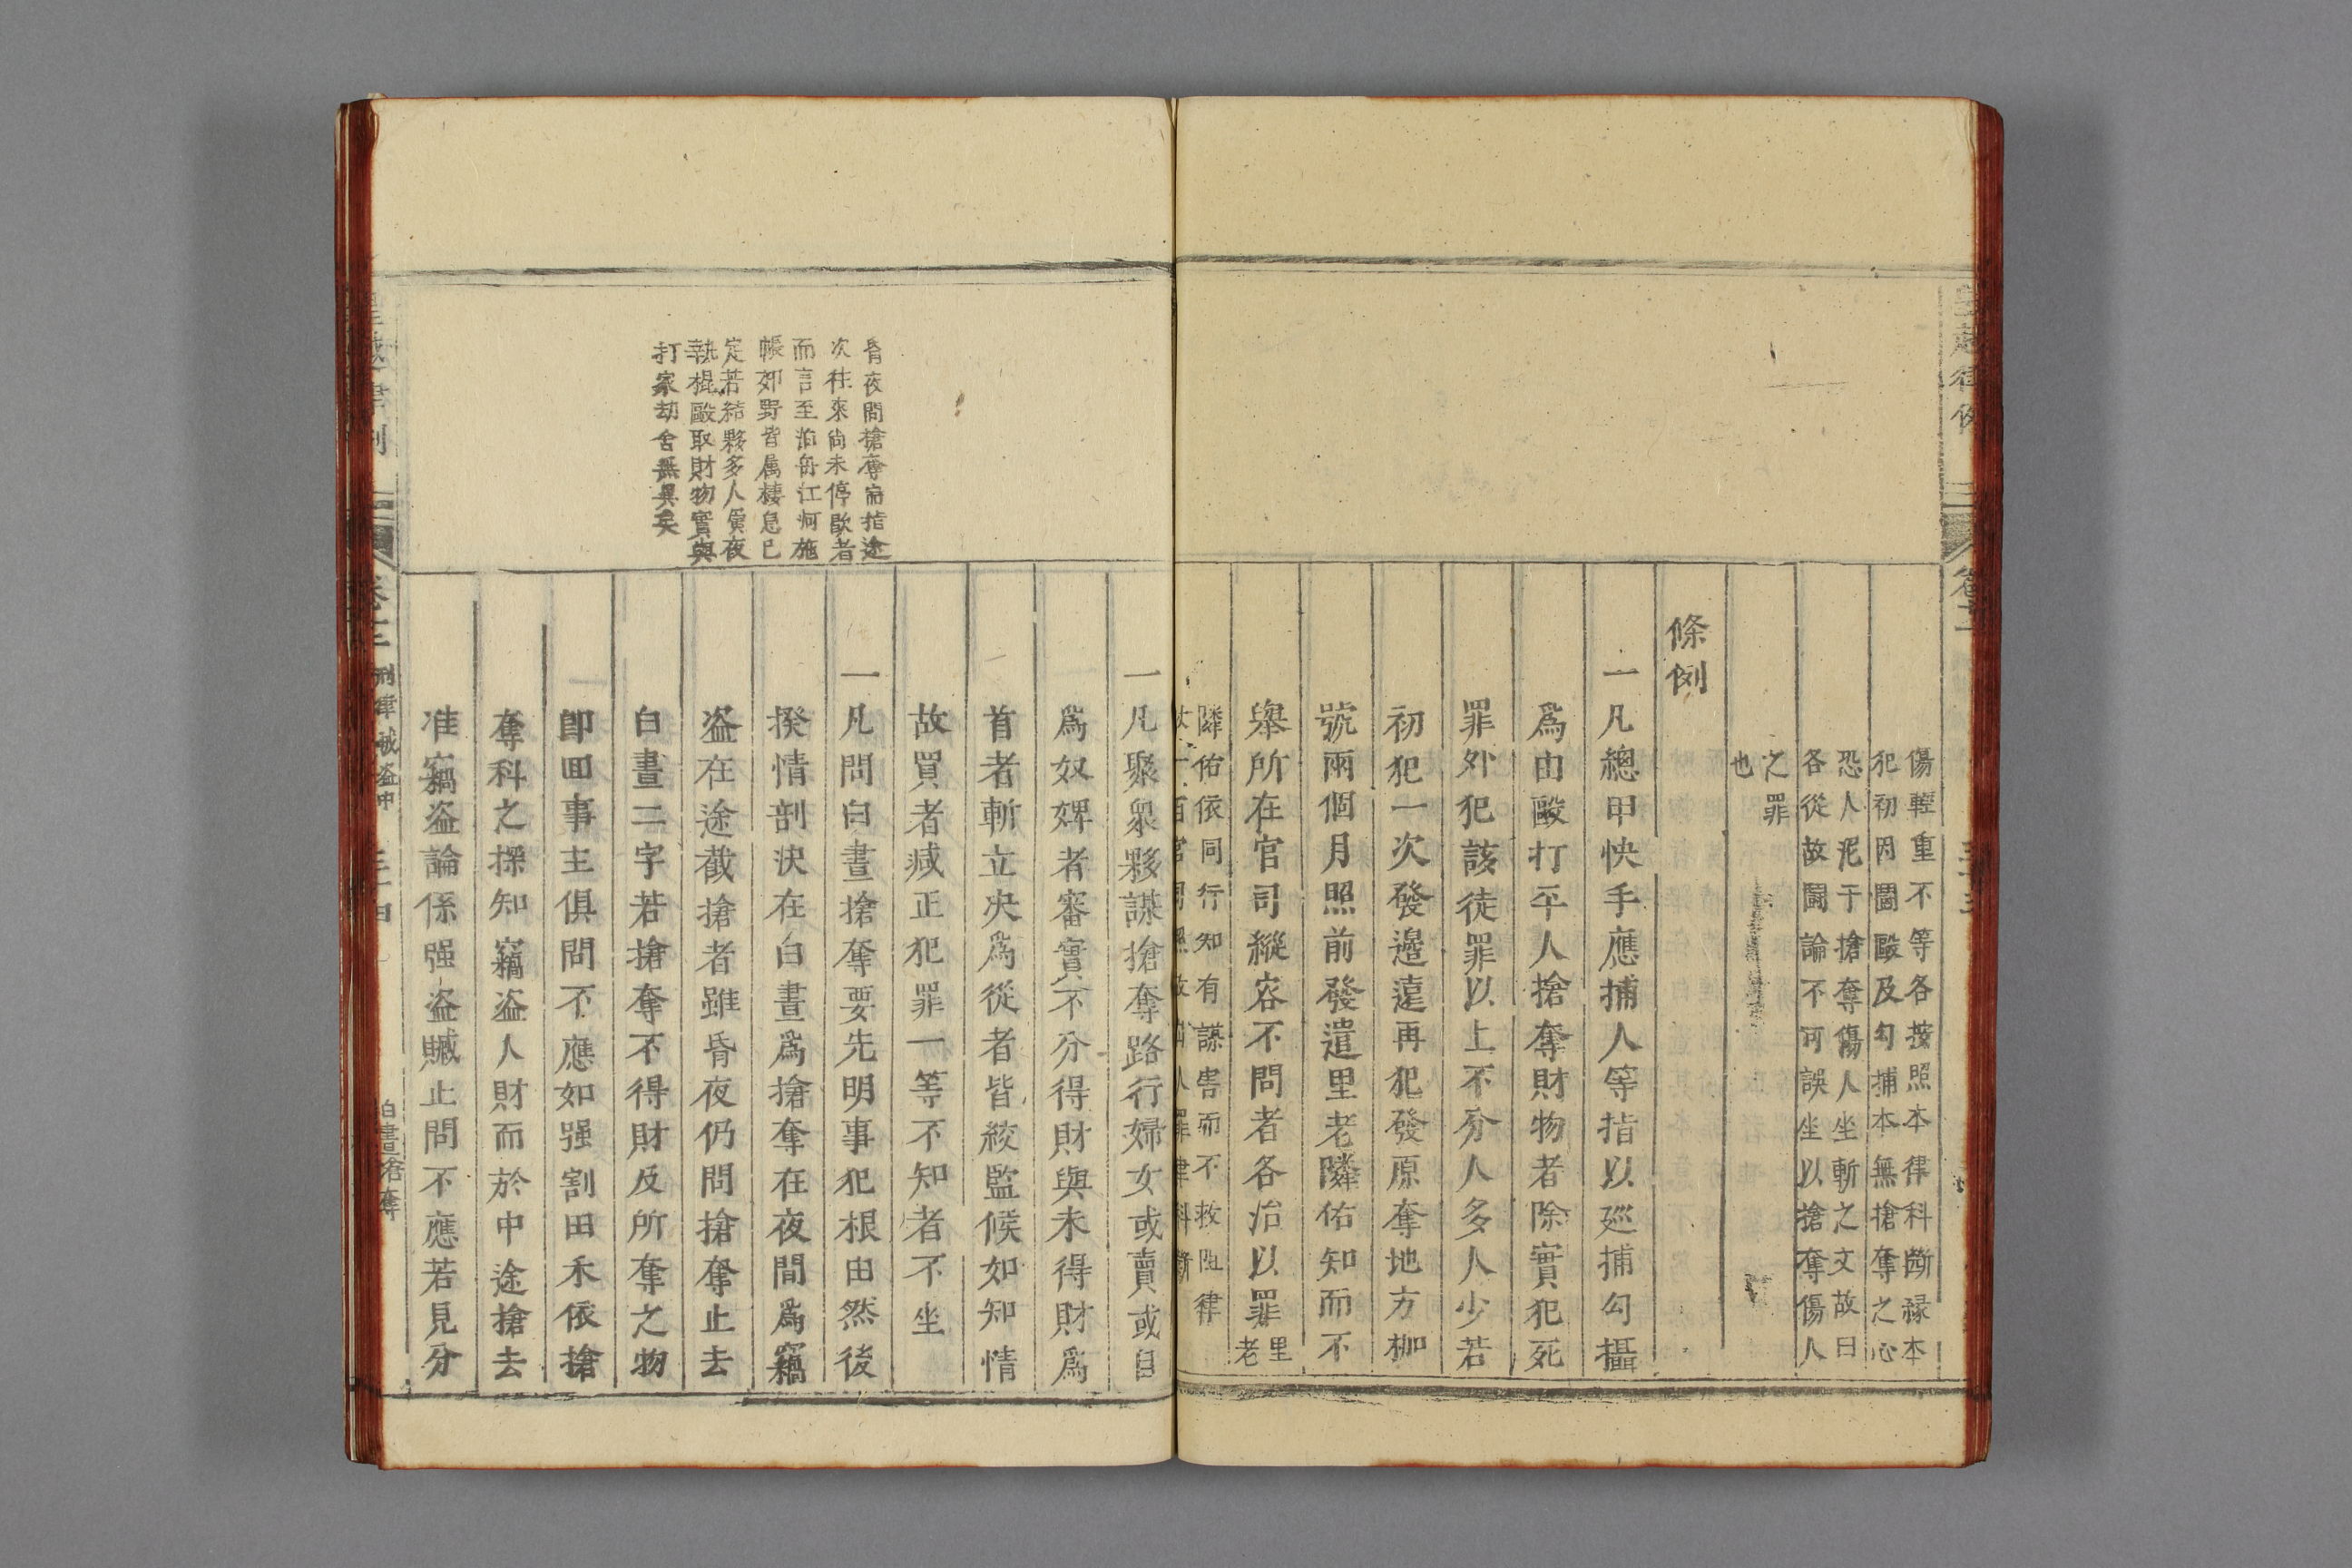 傷輕重不等各按照本律科斷緣本
犯初因鬬毆及勾捕本無搶奪之心
恐人泥于搶奪傷人坐斬之文故曰
各從故鬬論不可誤坐以搶奪傷人
之罪
也
條例
一凡總甲快手應捕人等指以廵捕勾攝
爲由毆打平人搶奪財物者除實犯死
罪外犯該徒罪以上不分人多人少若
初犯一次發邊遠再犯發原奪地方枷
號兩個月照前發遣里老隣佑知而不
舉所在官司縱容不問者各治以罪里
老
隣佑依同行知有謀害而不救阻律
杖一百官司照故出人罪律科斷
一凡聚衆夥謀搶奪路行婦女或賣或自
爲奴婢者審實不分得財與未得財爲
首者斬立决爲從者皆絞監候如知情
故買者减正犯罪一等不知者不坐
一凡問白晝搶奪要先明事犯根由然後
揆情剖決在白晝爲搶奪在夜間爲竊
盗在途截搶者雖昏夜仍問搶奪止去
白晝二字若搶奪不得財及所奪之物
卽囬事主俱問不應如强割田禾依搶
奪科之探知竊盗人財而於中途搶去
准竊盗論係强盗贓止問不應若見分
昏夜間搶奪耑指途
次徃來尚未停歇者
而言至泊舟江河施
帳郊野皆属棲息已
定若結夥多人夤夜
執棍毆取財物實與
打家劫舍無異矣
皇越律例
卷十二
刑律賊盗中
三十四
白晝搶奪